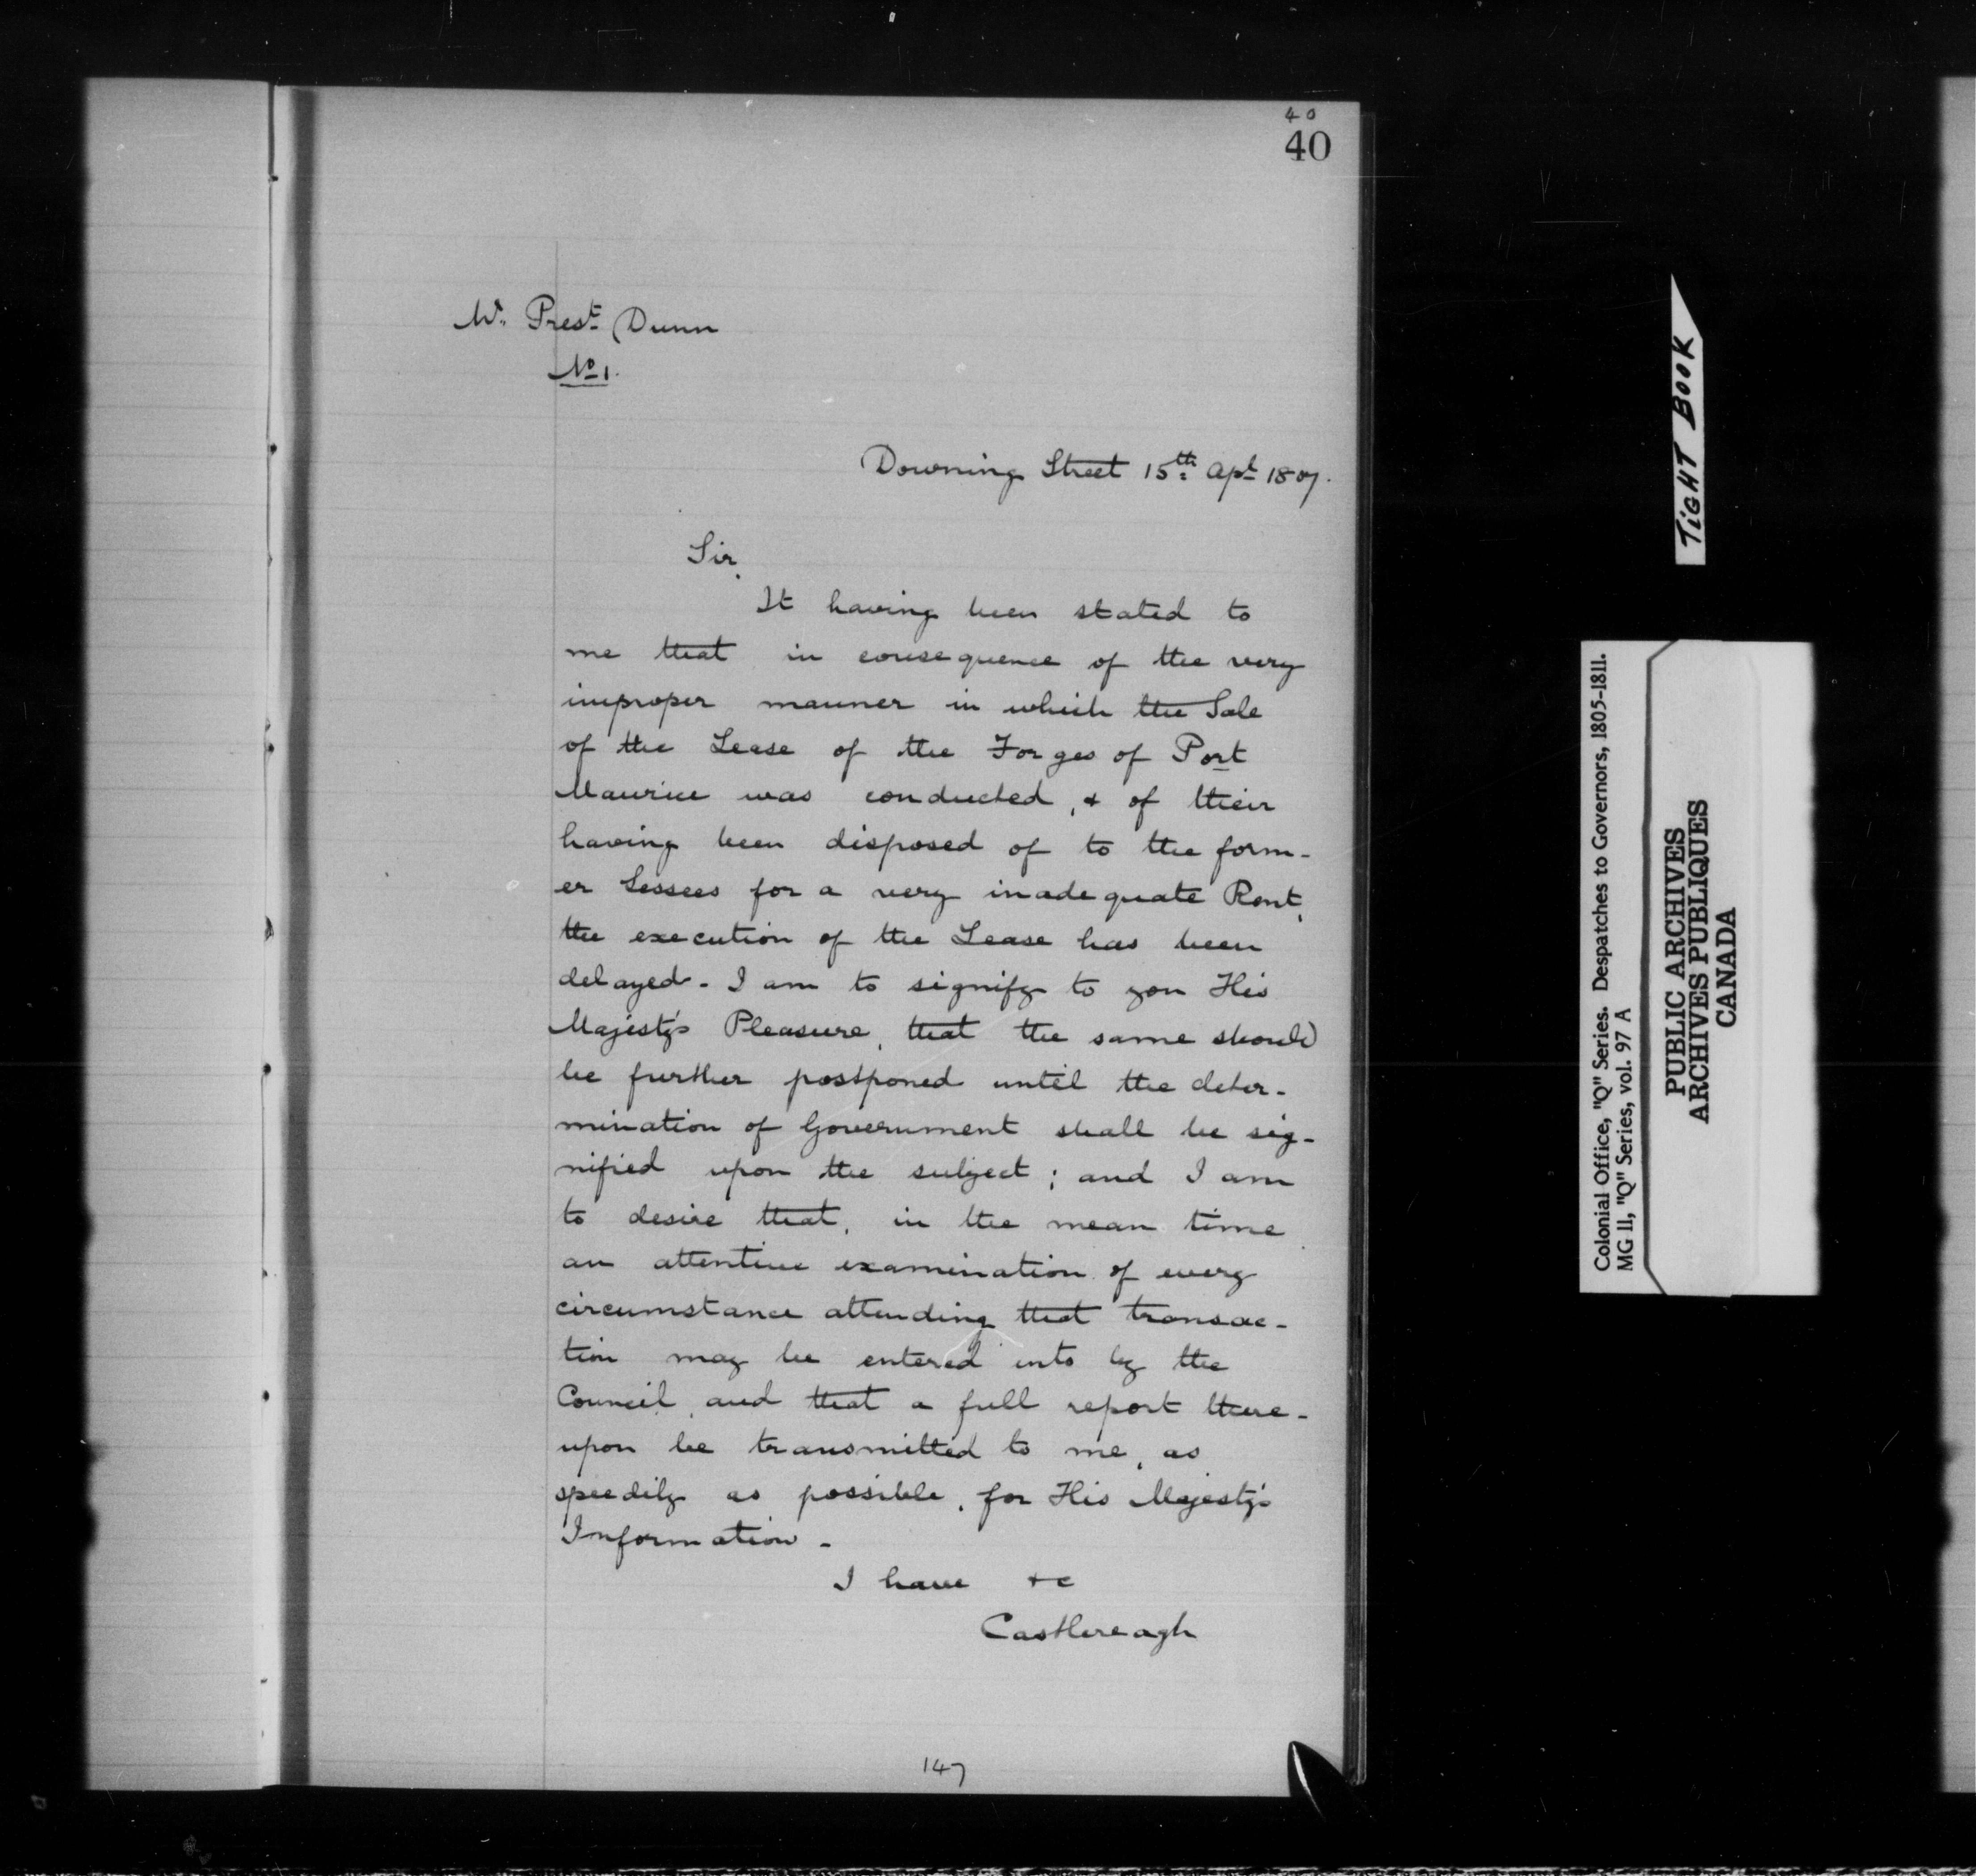 40
40
Mr. Prest. Dunn
No 1.
Downing Street 15th Apl 1807.
Sir,
It having been stated to
me that in consequence of the very
improper manner in which the Sale
of the Lease of the Forges of Port
Maurice was conducted, & of their
having been disposed of to the form-
er Lessees for a very inadequate Rent,
the execution of the Lease has been
delayed - I am to signify to you His
Majesty's Pleasure, that the same should
be further postponed until the deter-
mination of Government shall be sig-
nified upon the subject; and I am
to desire that, in the mean time
an attentive examination of every
circumstance attending that transac-
tion may be entered into by the
Council, and that a full report there-
upon be transmitted to me, as
speedily as possible, for His Majesty's
Information -
I have &c
Castlereagh
147
TIGHT BOOK
Colonial Office, "Q" Series. Despatches to Governors, 1805-1811.
MG 11, "Q" Series, vol. 97 A
PUBLIC ARCHIVES
ARCHIVES PUBLIQUES
CANADA